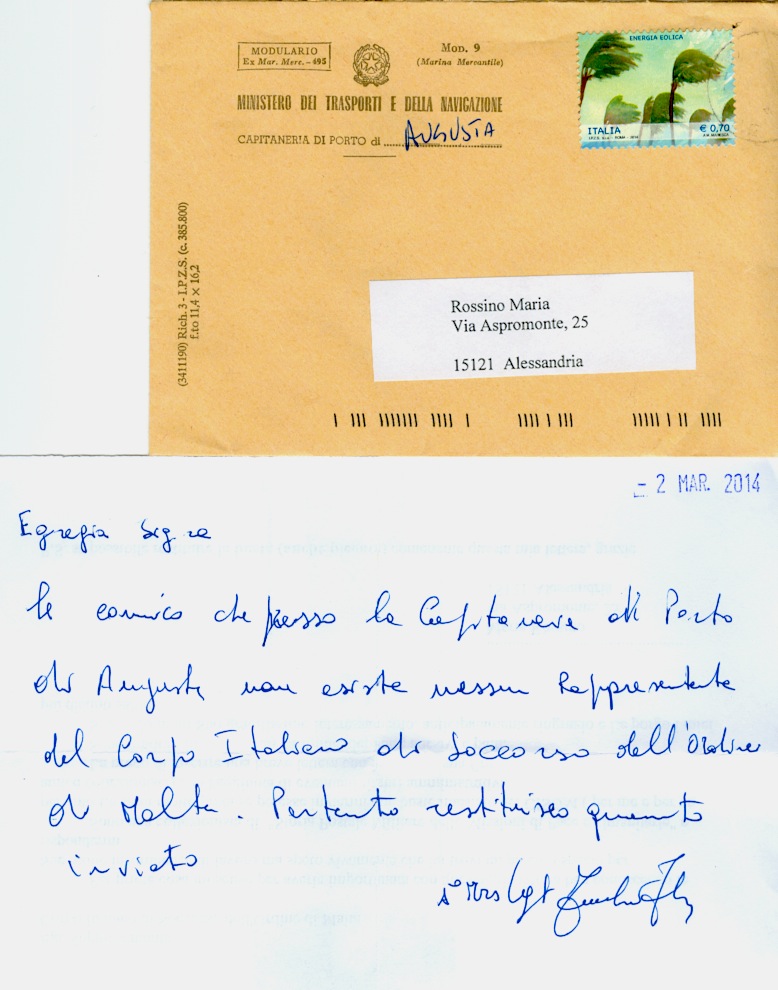 MODULARIO
Ex Mar. Merc. - 495
Mod. 9
(Marina Mercantile)
MINISTERO DEI TRASPORTI E DELLA NAVIGAZIONE
CAPITANERIA DI PORTO di AUGUSTA
ENERGIA EOLICA
ITALIA
€ 0,70
(3411190) Rich. 3 - I.P.Z.S. (c. 385.800)
f.to 11,4 × 16,2
Rossino Maria
Via Aspromonte, 25
15121 Alessandria
- 2 MAR. 2014
Egregia Sig.ra
le comunico che presso la Capitaneria di Porto
di Augusta non esiste nessun Rappresentante
del Corpo Italiano di Soccorso dell'Ordine
di Malta. Pertanto restituisco quanto
inviato